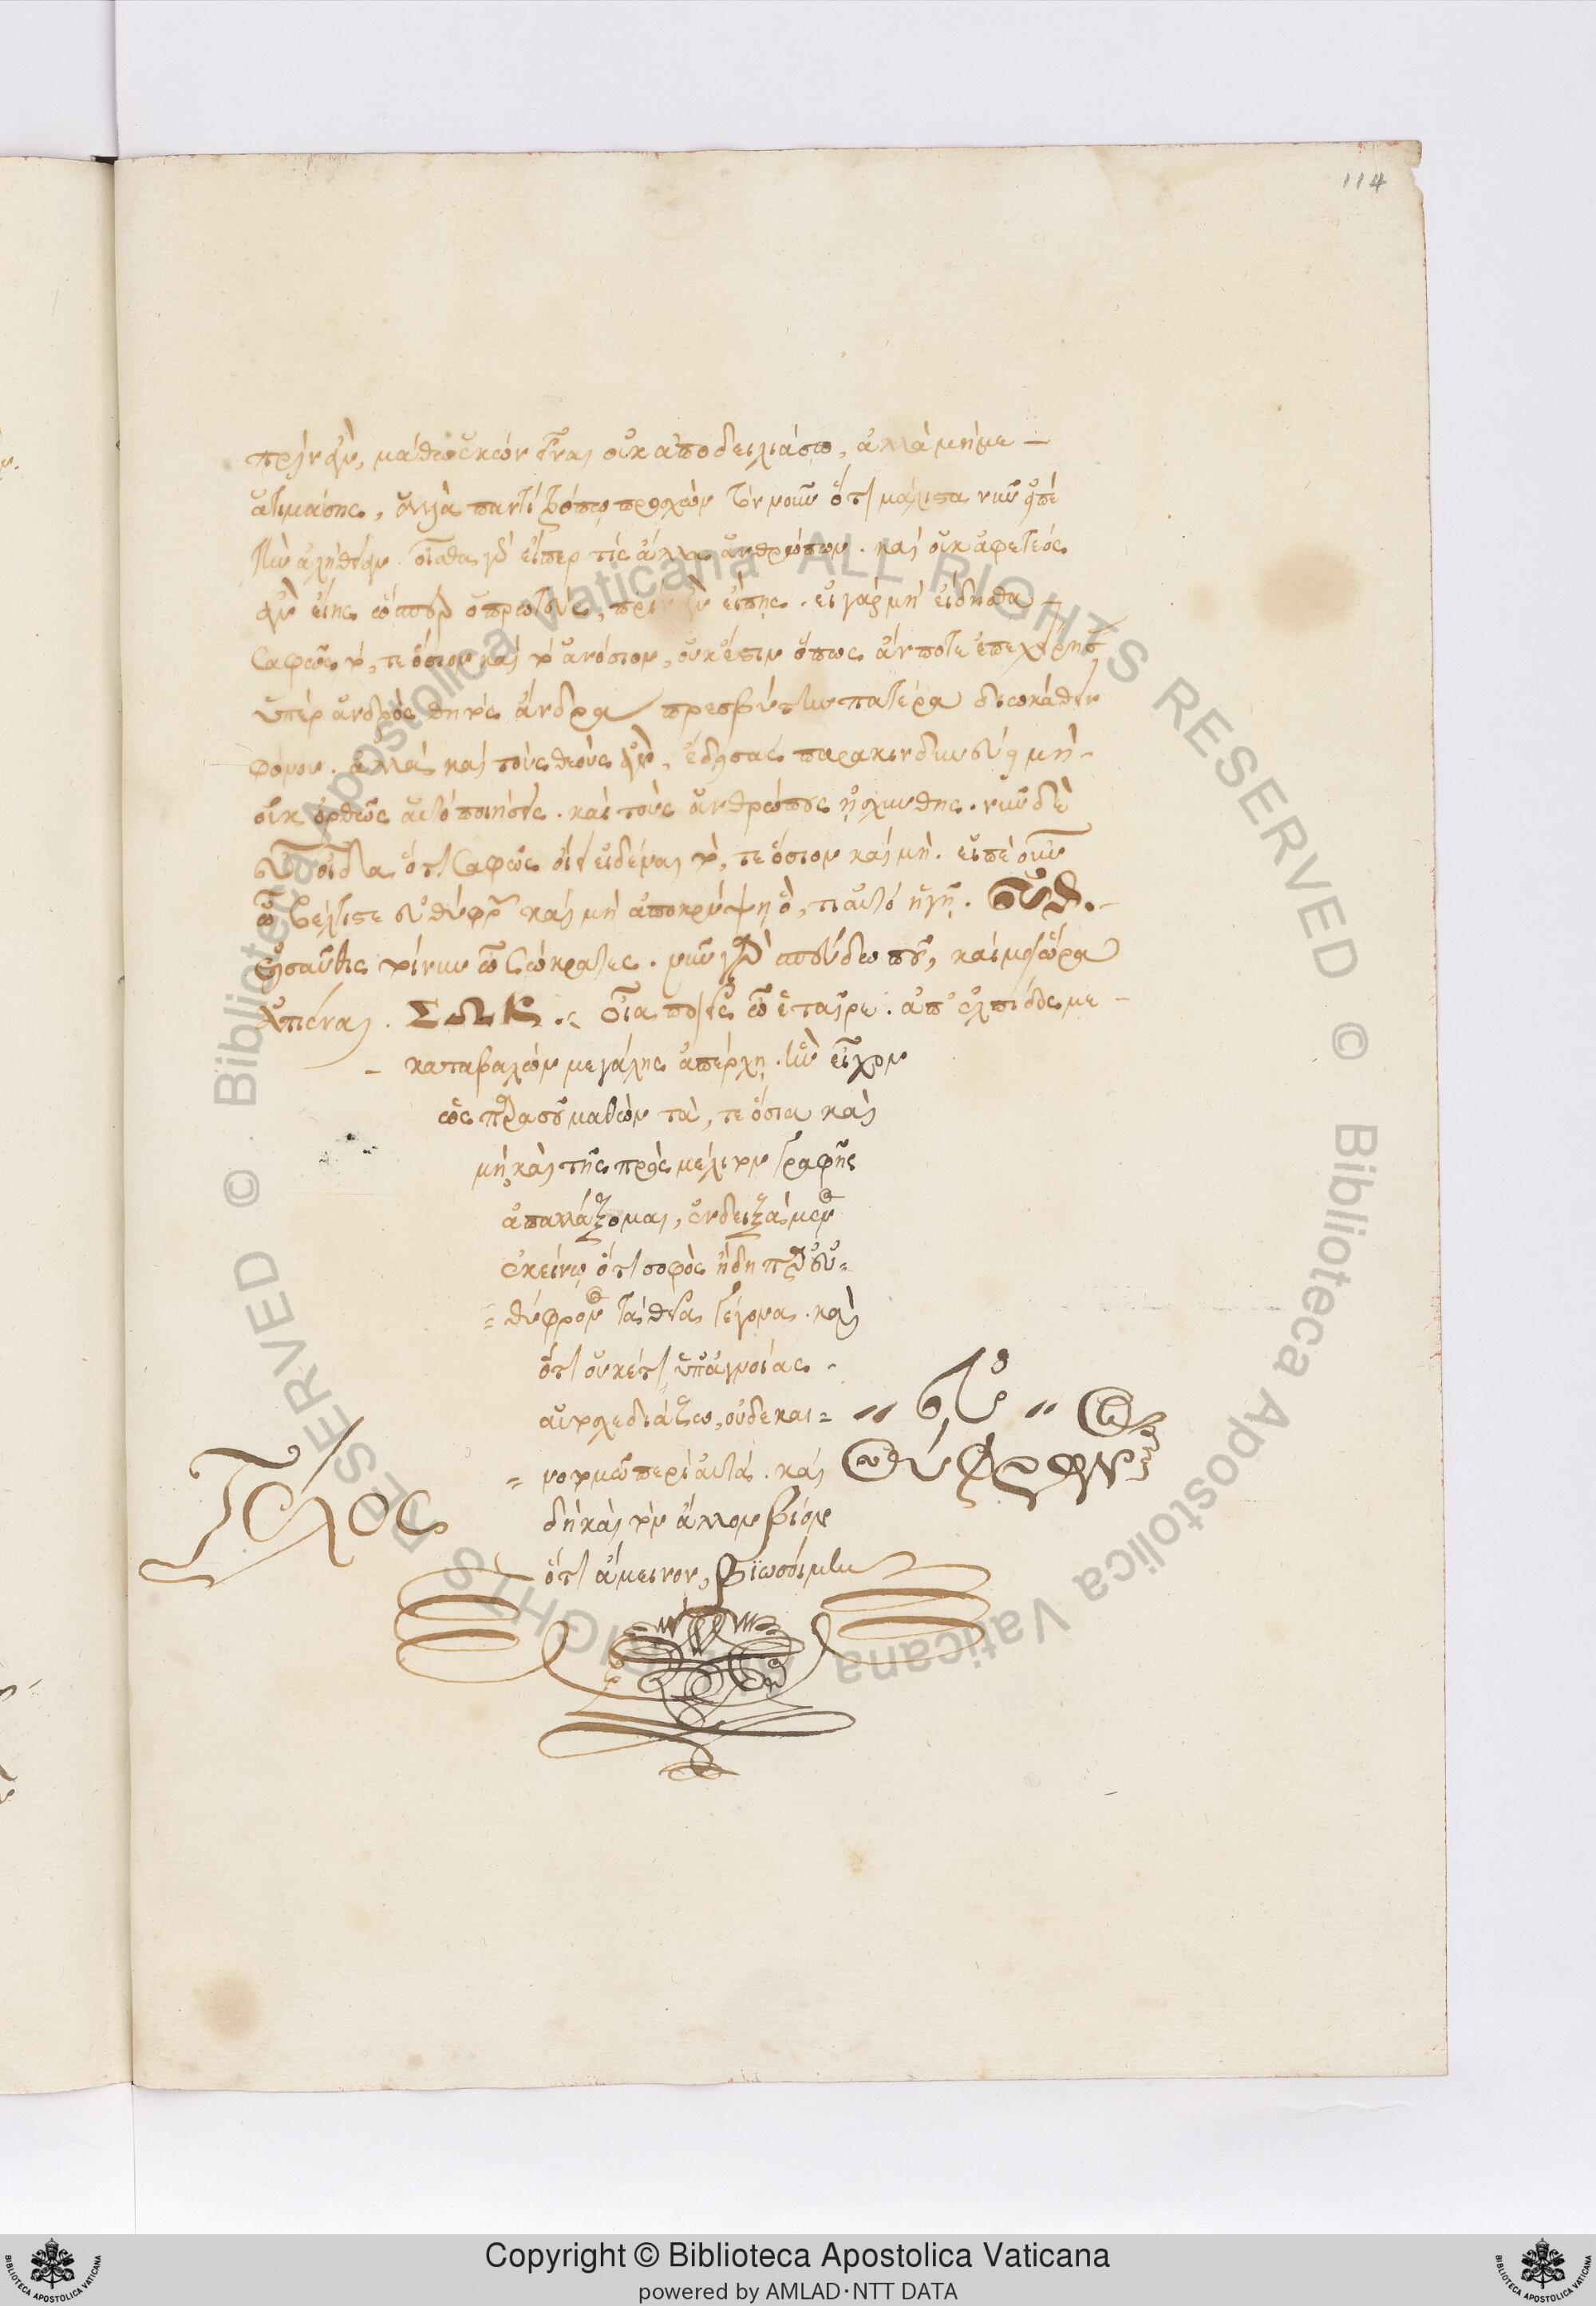 114
πρὶν ἂν, μάθω ἑκὼν εἶναι οὐκ ἀποδειλιάσω, ἀλλὰ μή με
ἀτιμάσης, ἀλλὰ παντὶ τρόπῳ προσχὼν τὸν νοῦν ὅτι μάλιστα νῦν εἰπὲ
τὴν ἀλήθειαν. οἶσθα γὰρ εἴπερ τὶς ἄλλος ἀνθρώπων. καὶ οὐκ ἀφετέος
ἂν εἴης ὥσπερ ὁ πρωτεὺς, πρὶν ἂν εἴπῃς. εἰ γὰρ μὴ εἴδησθα
σαφῶς τό, τε ὅσιον καὶ τὸ ἀνόσιον, οὐκ ἔστιν ὅπως ἄν ποτε ἐπεχείρησας
ὑπὲρ ἀνδρὸς θητὸς ἄνδρα πρεσβύτην πατέρα διωκάθειν
φόνου. ἀλλὰ καὶ τοὺς θεοὺς ἂν, ἔδεισας παρακινδυνεύειν μὴ
οὐκ ὀρθῶς αὐτὸ ποιήσεις. καὶ τοὺς ἀνθρώπους ᾐσχύνθης. νῦν δὲ
εὖ οἶδα ὅτι σαφῶς οἴει εἰδέναι τό, τε ὅσιον καὶ μή. εἰπὲ οὖν
ὦ βέλτιστε εὐθύφρον καὶ μὴ ἀποκρύψῃ ὅ, τι αὐτὸ ἡγῇ. ΕΥΘ.
εἰσαῦθις τοίνυν ὦ Σώκρατες. νῦν γὰρ σπεύδω ποι, καί μοι ὥρα
ἀπιέναι. ΣΩΚ. οἷα ποιεῖς ὦ ἑταῖρε. ἀπ' ἐλπίδος με
καταβαλὼν μεγάλης ἀπέρχῃ. ἣν εἶχον
ὡς παρὰ σοῦ μαθὼν τά, τε ὅσια καὶ
μή, καὶ τῆς πρὸς μέλιτον γραφῆς
ἀπαλλάξομαι, ἐνδειξάμενος
ἐκείνῳ ὅτι σοφὸς ἤδη παρ' εὐ=
= θύφρονος τὰ θεῖα γέγονα. καὶ
ὅτι οὐκέτι ὑπ' ἀγνοίας
αὐτοσχεδιάζω, οὐδὲ και=
= νοτομῶ περὶ αὐτά. καὶ
δὴ καὶ τὸν ἄλλον βίον
ὅτι ἄμεινον, βιωσοίμην
Τέλος
" τοῦ "
Εὐθύφρονος
Copyright © Biblioteca Apostolica Vaticana
powered by AMLAD·NTT DATA
© Biblioteca Apostolica Vaticana ALL RIGHTS RESERVED
© Biblioteca Apostolica Vaticana ALL RIGHTS RESERVED
BIBLIOTECA APOSTOLICA VATICANA
BIBLIOTECA APOSTOLICA VATICANA